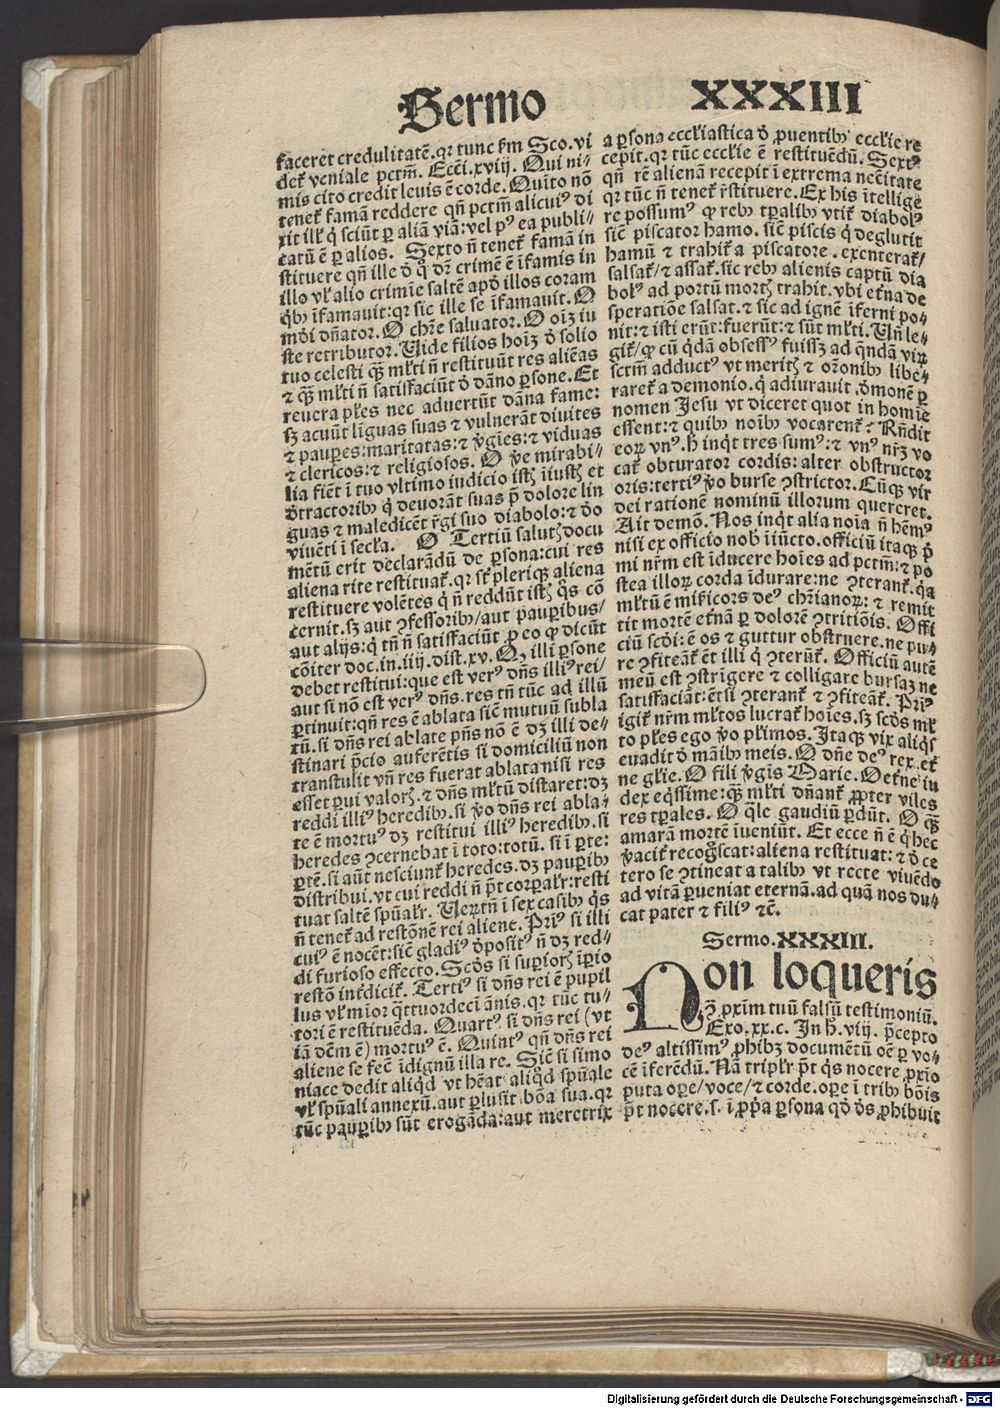 Sermo XXXIII
faceret credulitatē.qꝛ tunc ẜm Sco.vi
det᷑ veniale pctm̄. Ecci.xviij. Qui ni⸗
mis cito credit leuis ē corde. Quīto nō
tenet᷑ famā reddere qn̄ pctm̄ alicuiꝰ di
xit illꝭ q̇ sciūt ꝑ aliā viā:vel pꝰ ea publi⸗
catū ē ꝑ alios. Sexto n̄ tenet᷑ famā in
stituere qn̄ ille ð q̇ dr̄ crimē ē īfamis in
illo vł alio crimīe saltē apð illos coram
q̇bꝰ īfamauit:qꝛ sic ille se īfamauit. O
mōi dn̄ator. O chr̄e saluator. O oīꝫ iu
ste retributor. Vide filios hoīꝫ ð solio
tuo celesti qꝙ̄ mł̄ti n̄ restituūt res aliēas
⁊ qꝙ̄ mł̄ti n̄ satisfaciūt ð dāno ꝑsone. Et
reuera pł̄es nec aduertūt dāna fame:
sꝫ acuūt līguas suas ⁊ vulnerāt diuites
⁊ pauꝑes:maritatas:⁊ v̓gīes:⁊ viduas
⁊ clericos:⁊ religiosos. O v̓e mirabi⸗
lia fiēt ī tuo vltimo iudicio istꝭ īiustꝭ et
ðtractoribꝰ q̇ deuorāt suas p̄ dolore lin
guas ⁊ maledicēt r̓gi suo diabolo:⁊ ðo
viuēti ī secła. O Tertiū salutꝭ docu
mētū erit declarādū de ꝑsona:cui res
aliena rite restituat᷑.qꝛ st̄ pleriqꝫ aliena
restituere volētes q̇ n̄ reddūt istꝭ q̇s cō
cernit.sꝫ aut ꝯfessoribꝰ/aut pauꝑibus/
aut alijs:q̇ tn̄ n̄ satisfaciūt ꝓ eo ꝙ dicūt
cōiter doc.in.iiij.dist.xv. Qꝫ illi ꝑsone
debet restitui:que est verꝰ dn̄s illiꝰ rei/
aut si nō est verꝰ dn̄s.res tn̄ tūc ad illū
ꝑtinuit:qn̄ res ē ablata siē mutuū subla
tū.si dn̄s rei ablate pn̄s nō ē dꝫ illi de⸗
stinari p̄cio auferētis si domiciliū non
transtulit vn̄ res fuerat ablata nisi res
esset ꝑui valorꝭ.⁊ dn̄s mł̄tū distaret:dꝫ
reddi illiꝰ heredibꝰ.si v̓o dn̄s rei abla⸗
te ē mortuꝰ dꝫ restitui illiꝰ heredibꝰ.si
heredes ꝯcernebat ī toto:totū. si ī ꝑte:
ꝑtē.si aūt nesciunt᷑ heredes.dꝫ pauꝑibꝰ
distribui.vt cui reddi n̄ p̄t corꝑalr̄:resti
tuat saltē spūalr̄. Veꝝtn̄ ī sex casibꝰ q̇s
n̄ tenet᷑ ad restōnē rei aliene. Prīꝰ si illi
cuiꝰ ē nocēt:siē gladiꝰ ðpositꝰ n̄ dꝫ red⸗
di furioso effecto. Scðs si suꝑiorꝭ īꝑio
restō int̓dicit᷑. Tertiꝰ si dn̄s rei ē pupil
lus vł mīor q̄ttuordecī ānis.qꝛ tūc tu⸗
tori ē restituēda. Quartꝰ si dn̄s rei (vt
iā dc̄m ē) mortuꝰ ē. Quintꝰ qn̄ dn̄s rei
aliene se fec̄ īdignū illa re. Siē si simo
niace dedit aliq̇d vt hēat aliq̇d spūale
vł spūali annexū.aut ꝑlusit bōa sua.qꝛ
tūc pauꝑibꝰ sūt erogāda:aut meretrix
a ꝑsona ecclīastica ð ꝓuentibꝰ ecclīe re
cepit.qꝛ tūc ecclīe ē restituēdū. Sextꝰ
qn̄ rē alienā recepit ī extrema necītate
qꝛ tūc n̄ tenet᷑ r̓stituere. Ex his ītellige
re possumꝰ ꝙ rebꝰ tꝑalibꝰ vtit᷑ diabolꝰ
siē piscator hamo. siē piscis q̇ deglutit
hamū ⁊ trahit᷑ a piscatore. exenterat᷑/
salsat᷑/⁊ assat᷑.sic rebꝰ alienis captū dia
bolꝰ ad portū mortꝭ trahit.vbi et̓na de
speratiōe salsat.⁊ sic ad ignē īferni po⸗
nit:⁊ isti erūt:fuerūt:⁊ sūt mł̄ti. Vn̄ le⸗
git᷑/ꝙ cū q̇dā obsessꝰ fuissꝫ ad q̄ndā viꝝ
sctm̄ adductꝰ vt meritꝭ ⁊ or̄onibꝰ libe⸗
raret᷑ a demonio.q̇ adiurauit ðmonē ꝑ
nomen Jesu vt diceret quot in homīe
essent:⁊ quibꝰ noībꝰ vocarent᷑? Rn̄dit
eoꝝ vnꝰ.h̄ inq̇t tres sumꝰ:⁊ vnꝰ nr̄ꝫ vo
cat᷑ obturator cordis:alter obstructor
oris:tertiꝰ v̓o burse ꝯstrictor. Cūqꝫ vir
dei rationē nominū illorum quereret.
Ait demō. Nos inq̇t alia noīa n̄ hēmꝰ
nisi ex officio nob̓ iīucto.officiū itaqꝫ p̓
mi nr̄m est īducere hoīes ad pctm̄:⁊ po
stea illoꝝ corda īdurare:ne ꝯterant᷑.q̇a
mł̄tū ē mīsicors deꝰ chr̄ianoꝝ:⁊ remit
tit mortē et̓nā ꝑ dolorē ꝯtritiōis. Offi
ciū scðī:ē os ⁊ guttur obstruere.ne pu⸗
re ꝯfiteāt᷑ ēt illi q̇ ꝯterūt᷑. Officiū autē
meū est ꝯstrigere ⁊ colligare bursaꝫ ne
satisfaciāt:ēt si ꝯterant᷑ ⁊ ꝯfiteāt᷑. Prīꝰ
igit᷑ nr̄m mł̄tos lucrat᷑ hoīes.sꝫ scðs mł
to pł̄es ego v̓o pł̄imos. Itaqꝫ vix aliq̇s
euadit ð māibꝰ meis. O dn̄e deꝰ rex et̓
ne gł̄ie. O fili v̓gīs Marie. O et̓ne iu
dex eq̇ssime:qꝙ̄ mł̄ti dn̄ant᷑ ꝓpter viles
res tꝑales. O q̄le gaudiū ꝑdūt. O qꝙ̄
amarā mortē īueniūt. Et ecce n̄ ē q̇ hec
v̓acit᷑ recogscat:aliena restituat:⁊ ð ce
tero se ꝯtineat a talibꝰ vt recte viuēdo
ad vitā ꝑueniat eternā.ad quā nos du⸗
cat pater ⁊ filiꝰ ⁊c̄.
Sermo.XXXIII.
Non loqueris
ꝯ̄ pxīm tuū falsū testimoniū.
Exo.xx.c. In h̄.viij. p̄cepto
deꝰ altissimꝰ ꝓhibꝫ documētū oē ꝑ vo⸗
cē īferēdū. Nā triplr̄ p̄t q̇s nocere ꝓxīo
puta oꝑe/voce/⁊ corde.oꝑe ī tribꝰ bōis
p̄t nocere.s.ī ꝓp̓a ꝑsona qð ðs ꝓhibuit
Digitalisierung gefördert durch die Deutsche Forschungsgemeinschaft - DFG